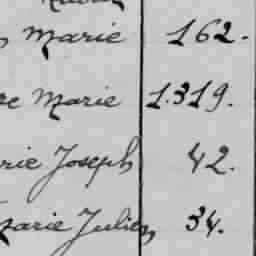 Marie 162.
Marie 1.319.
rie Joseph 42.
Marie Julien 34.